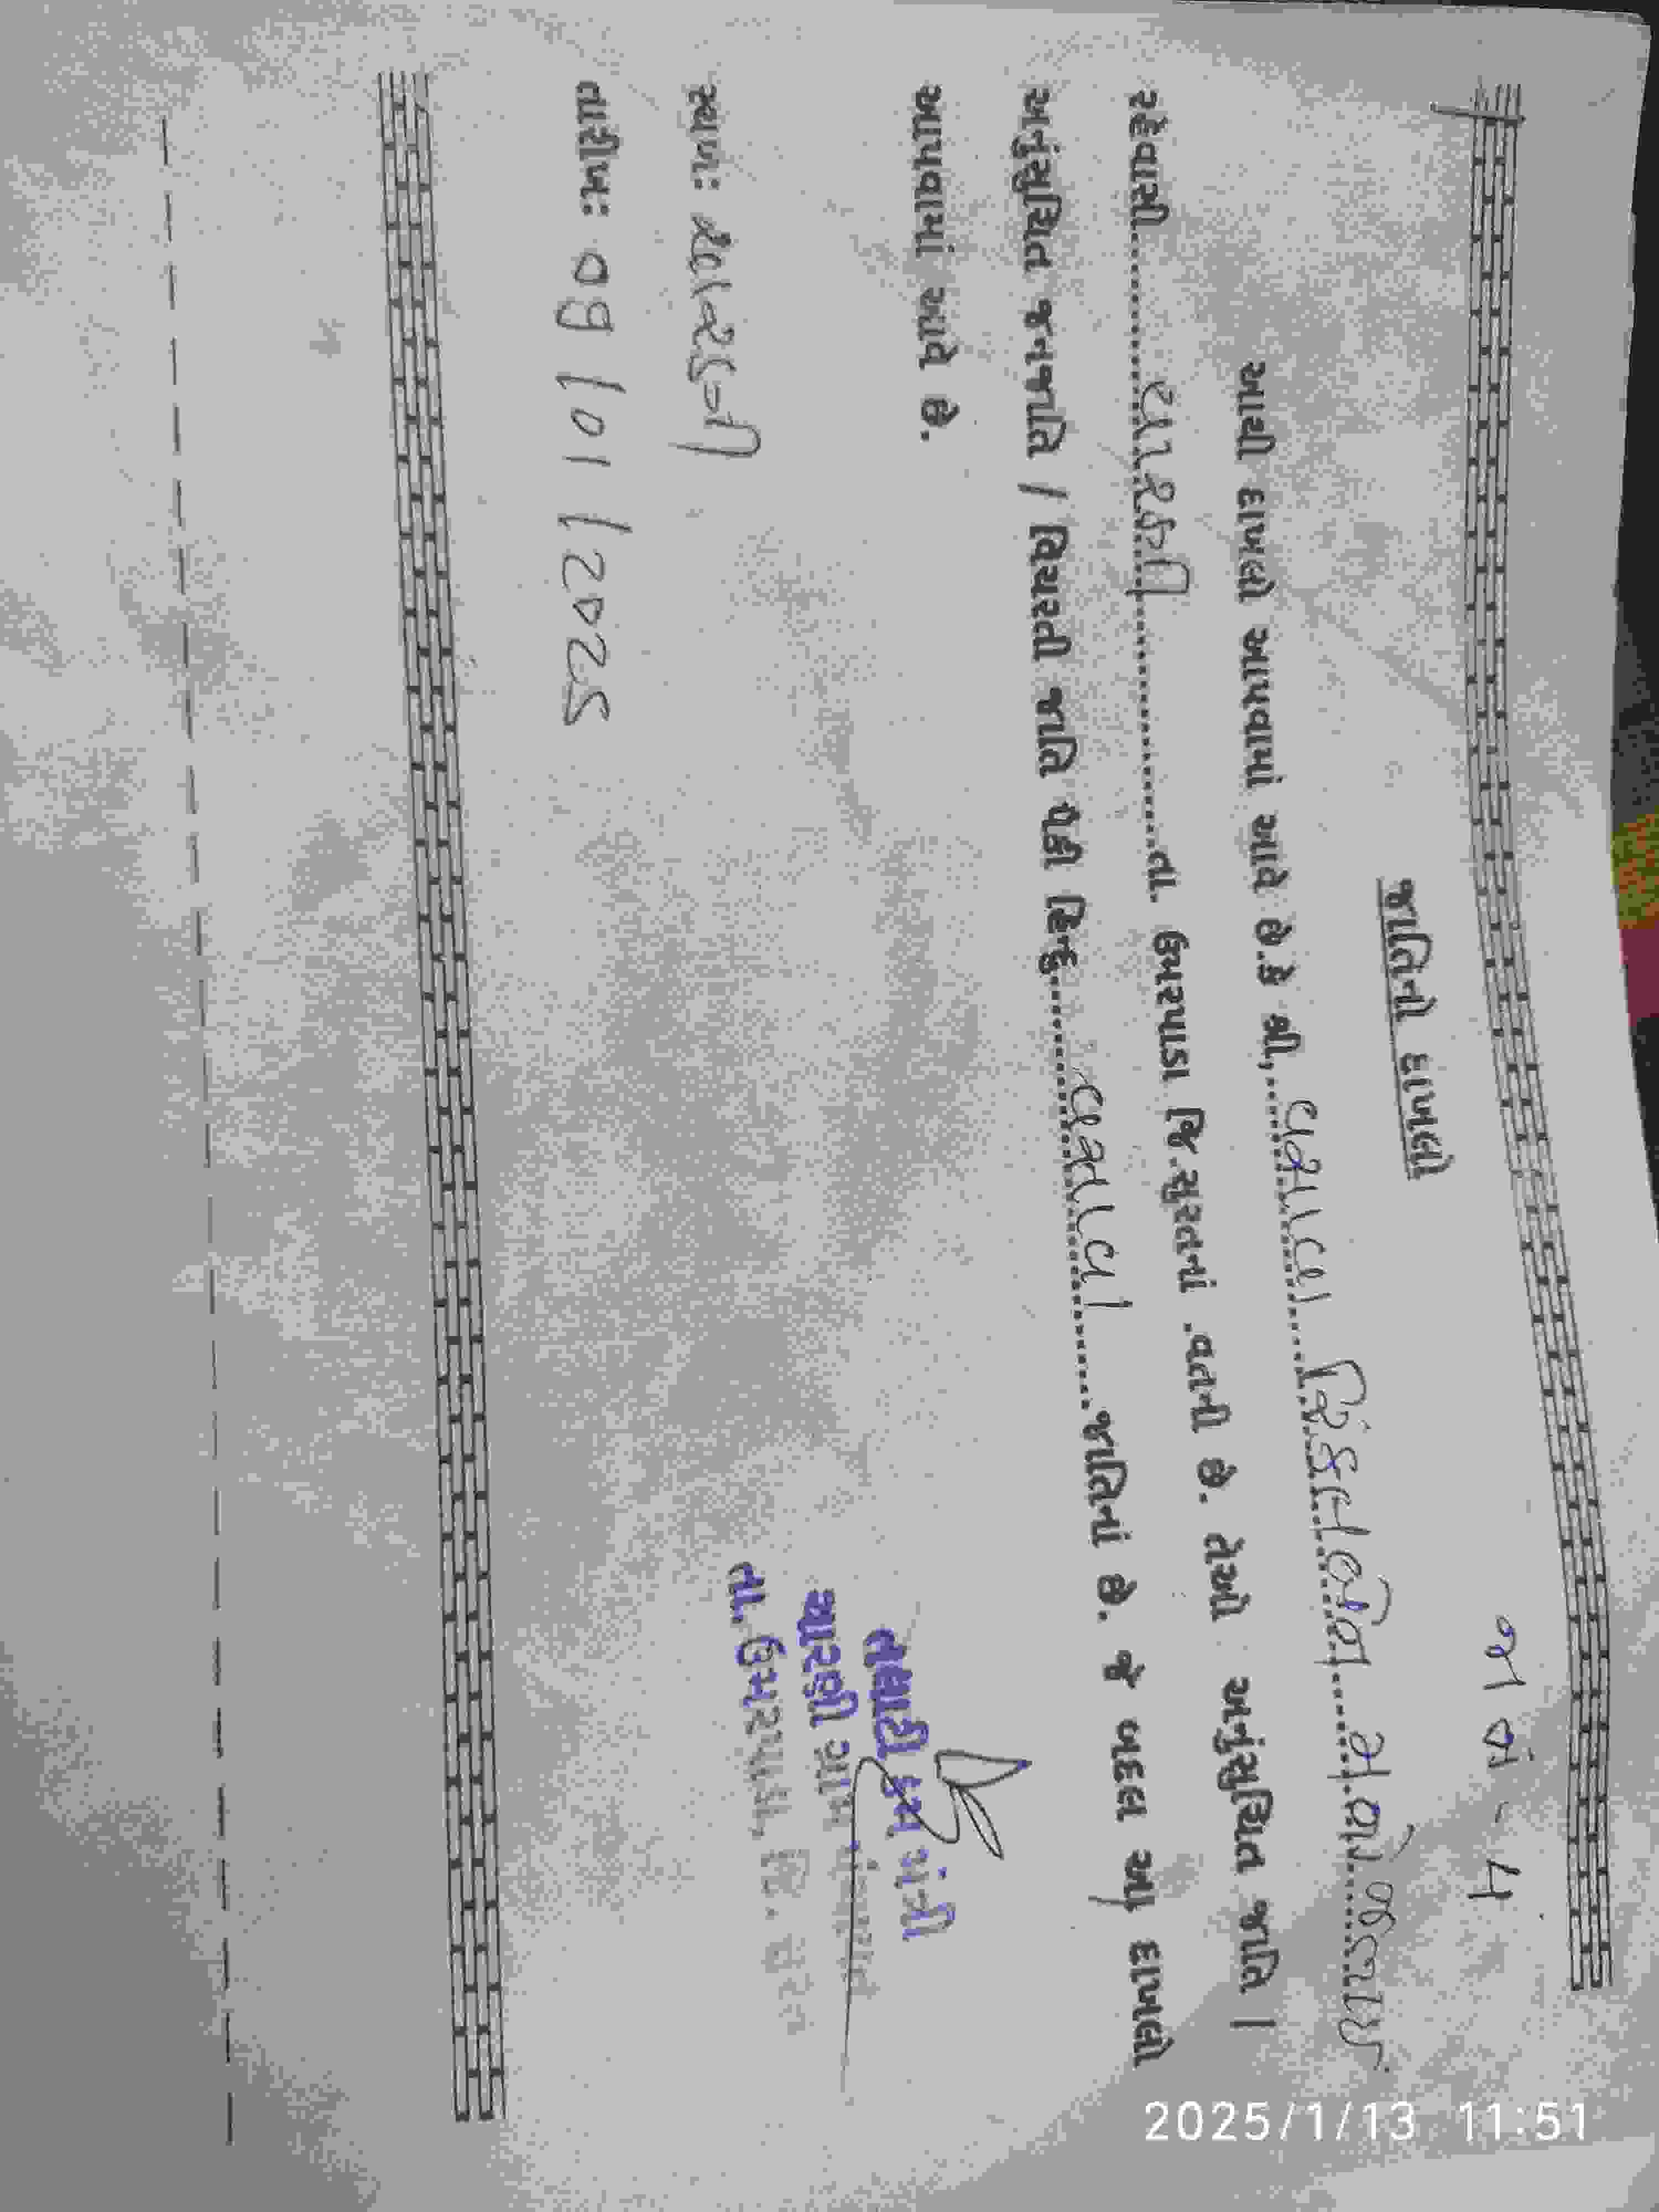 જા નં - ૫
જાતિનો દાખલો
આથી દાખલો આપવામાં આવે છે.કે શ્રી,..........વસાવા
રહેવાસી..........ચારણી..........તા. ઉમરપાડા જિ.સુરતનાં .વતની છે. તેઓ અનુંસુચિત જાતિ /
અનુંસુચિત જનજાતિ / વિચરતી જાતિ પૈકી હિન્દુ..........વસાવા..........જાતિનાં છે. જે બદલ આ દાખલો
આપવામાં આવે છે.
તલાટી કમ મંત્રી
ચારણી ગ્રામ પંચાયત
તા. ઉમરપાડા, જિ. સુરત
સ્થળ:
તારીખ: ૦9/01/2025
2025/1/13 11:51